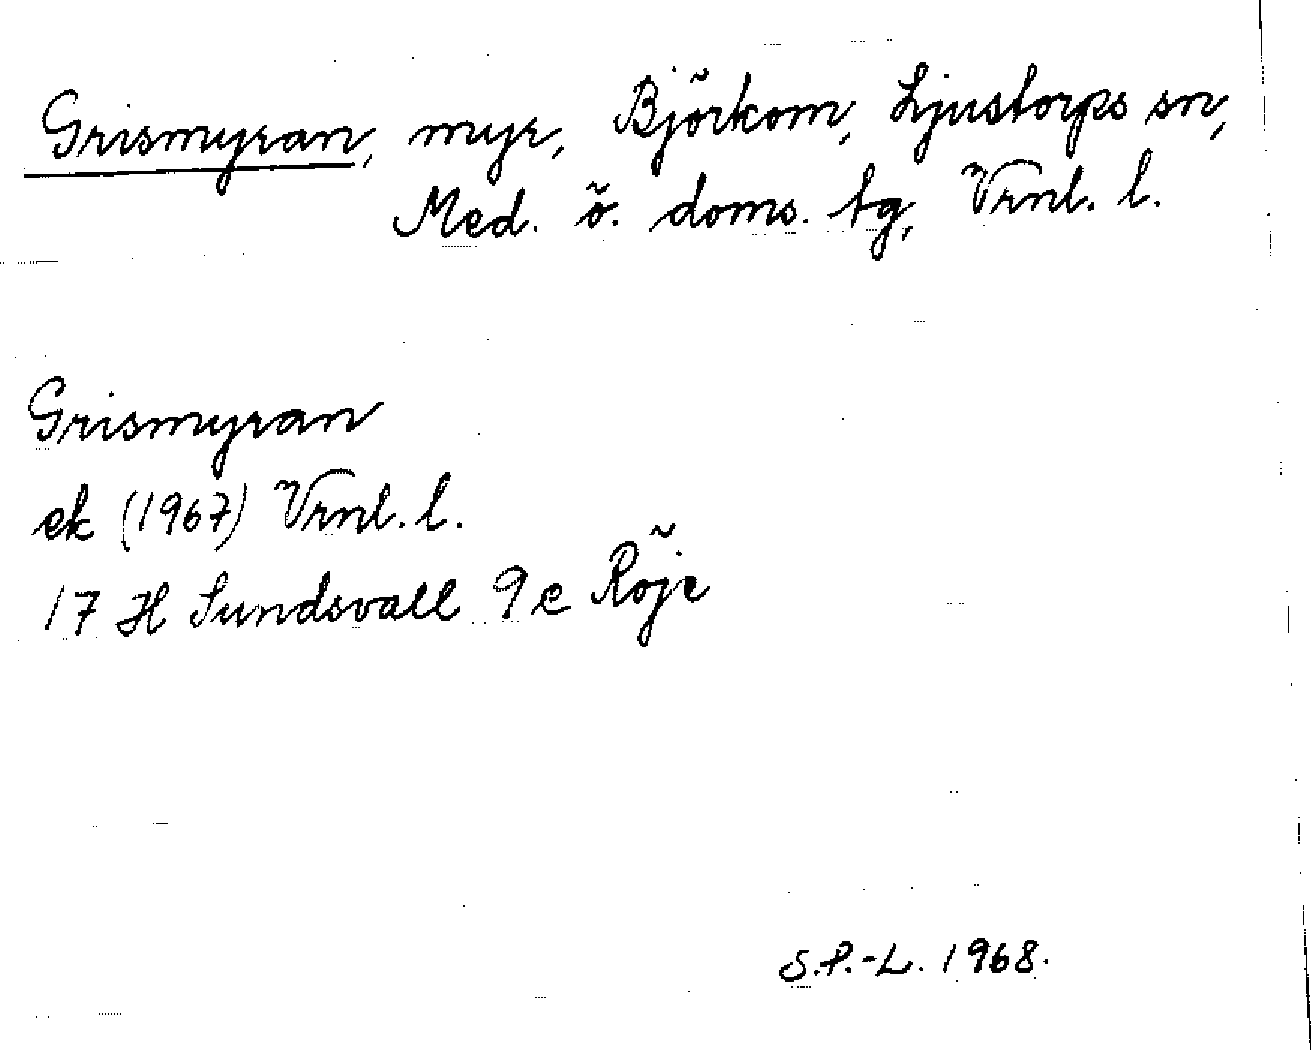 Grismyran, myr, Björkom, Ljustorps sn,
Med. ö. doms. tg, Vrnl. l.
Grismyran
ek (1967) Vrnl. l.
17 H Sundsvall 9 e Röje
S.P.-L. 1968.